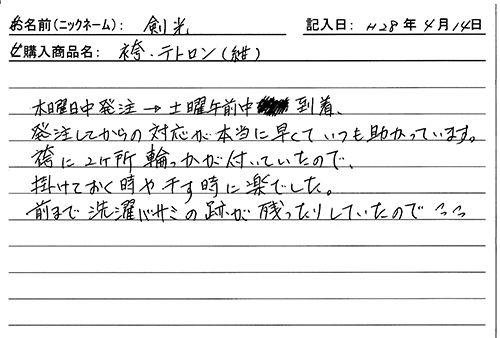 お名前(ニックネーム): 剣光 記入日: H28年4月14日
ご購入商品名: 袴・テトロン(紺)
水曜日中発注→土曜午前中 到着、
発注してからの対応が本当に早くていつも助かっています。
袴に2ヶ所輪っかが付いていたので、
掛けておく時や干す時に楽でした。
前まで洗濯バサミの跡が残ったりしていたので